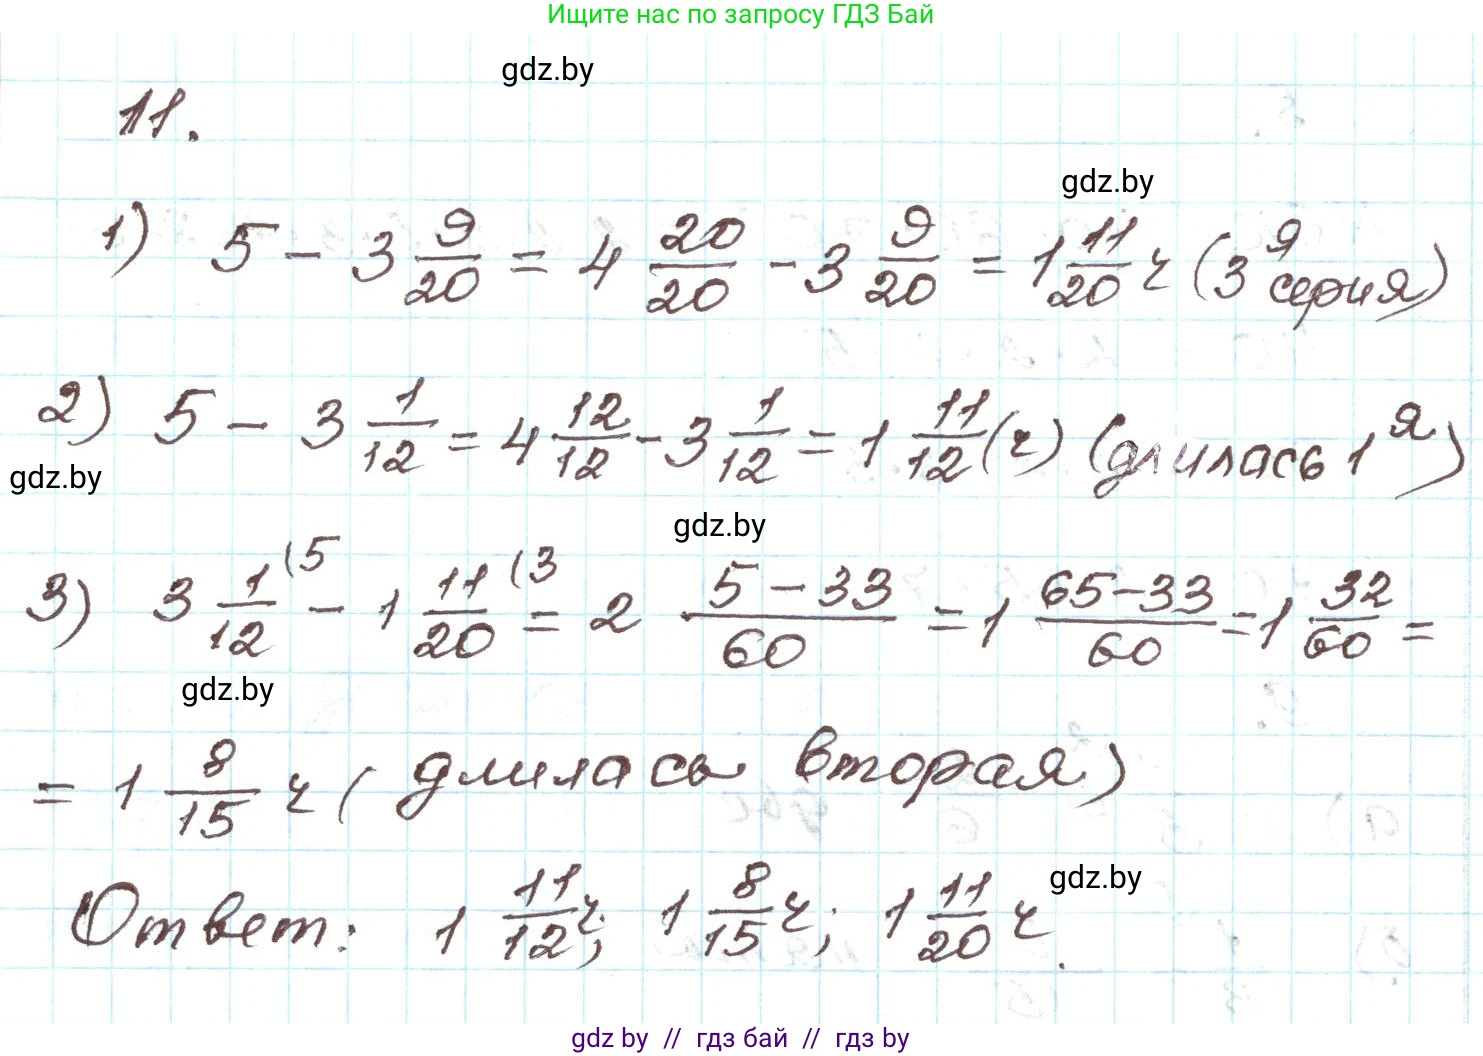 Ищите нас по запросу ГДЗ Бай
gdz.by
11.
gdz.by
1) 5 - 3 9/20 = 4 20/20 - 3 9/20 = 1 11/20 ч (3я серия)
2) 5 - 3 1/12 = 4 12/12 - 3 1/12 = 1 11/12 (ч) (длилась 1я)
gdz.by
gdz.by
3) 3 1/12 (5 - 1 11/20 (3 = 2 5-33/60 = 1 65-33/60 = 1 32/60 =
gdz.by
= 1 8/15 ч (длилась вторая)
gdz.by
Ответ: 1 11/12 ч; 1 8/15 ч; 1 11/20 ч.
gdz by // гдз бай // гдз by